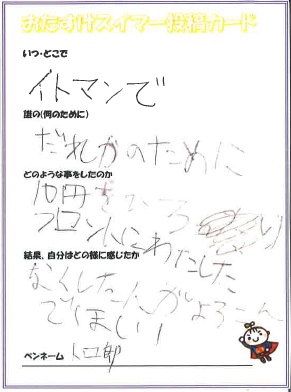 おたすけスイマー投稿カード
いつ・どこで
イトマンで
誰の(何のために)
だれかのために
どのような事をしたのか
10円をひろい
フロントにわたした
結果、自分はどの様に感じたか
なくした人がよろこん
でほしい
ペンネーム